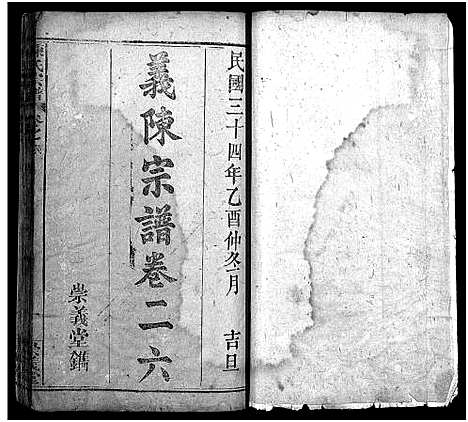 民國三十四年乙酉仲冬月　吉旦
義陳宗譜卷二六
崇義堂鐫